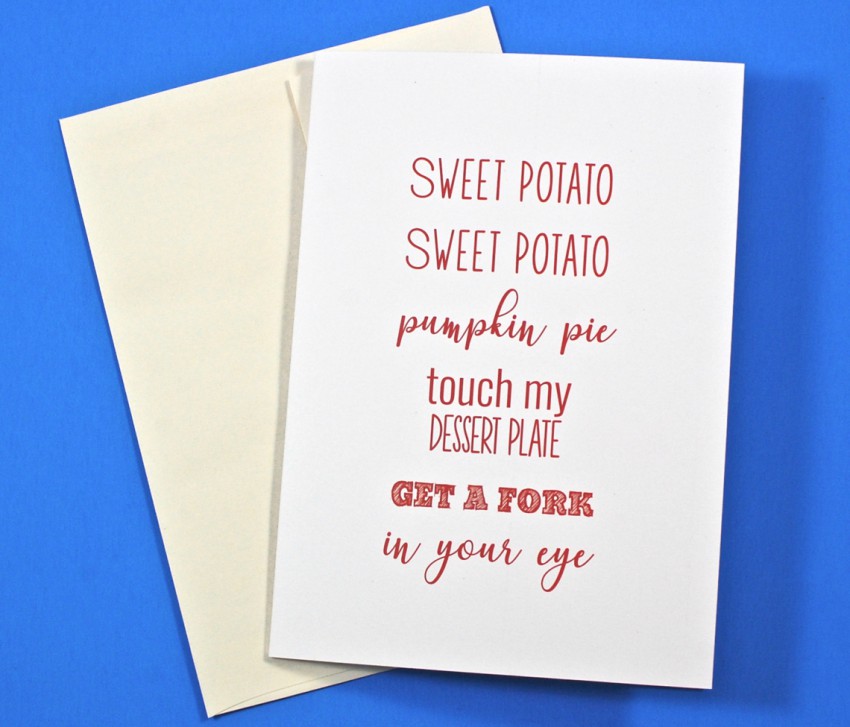 SWEET POTATO
SWEET POTATO
pumpkin pie
touch my
DESSERT PLATE
GET A FORK
in your eye